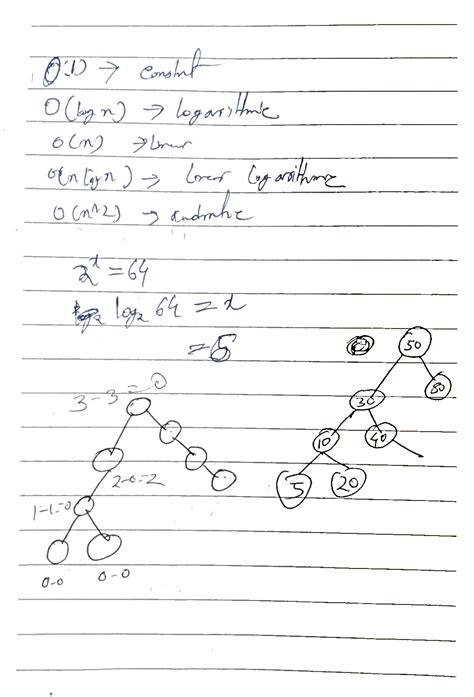 O(1) → constnt
O(log n) → logarithmic
O(n) → linear
O(n log n) → linear logarithmic
O(n^2) →
2^x = 64
log₂ 64 = x
= 6
50
30
80
10
40
5
20
3-3=0
2-0=2
1-1=0
0-0
0-0